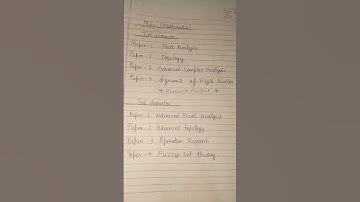 Msc (Mathematics)
Ist semester
Paper - 1 Real Analysis
Paper - 2 Topology
Paper - 3 Advanced Complex Analysis
Paper - 4 Dynamics of Rigid bodies
* Research Project *
2nd Semester
Paper - 1 Advanced Real Analysis
Paper - 2 Advanced Topology
Paper - 3 Operation Research
Paper - 4 Fuzzy Set theory